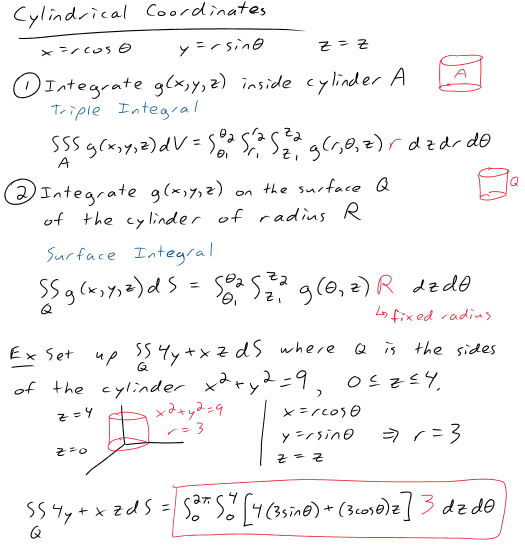 Cylindrical Coordinates
x = r cos θ    y = r sin θ    z = z
① Integrate g(x,y,z) inside cylinder A
A
Triple Integral
∫∫∫_A g(x,y,z) dV = ∫_θ₁^θ₂ ∫_r₁^r₂ ∫_z₁^z₂ g(r,θ,z) r dz dr dθ
② Integrate g(x,y,z) on the surface Q
Q
of the cylinder of radius R
Surface Integral
∫∫_Q g(x,y,z) dS = ∫_θ₁^θ₂ ∫_z₁^z₂ g(θ,z) R dz dθ
↳ fixed radius
Ex Set up ∫∫_Q 4y + xz dS where Q is the sides
of the cylinder x² + y² = 9, 0 ≤ z ≤ 4.
z = 4
x² + y² = 9
r = 3
z = 0
x = r cos θ
y = r sin θ ⇒ r = 3
z = z
∫∫_Q 4y + xz dS = ∫_0^2π ∫_0^4 [4(3 sin θ) + (3 cos θ)z] 3 dz dθ